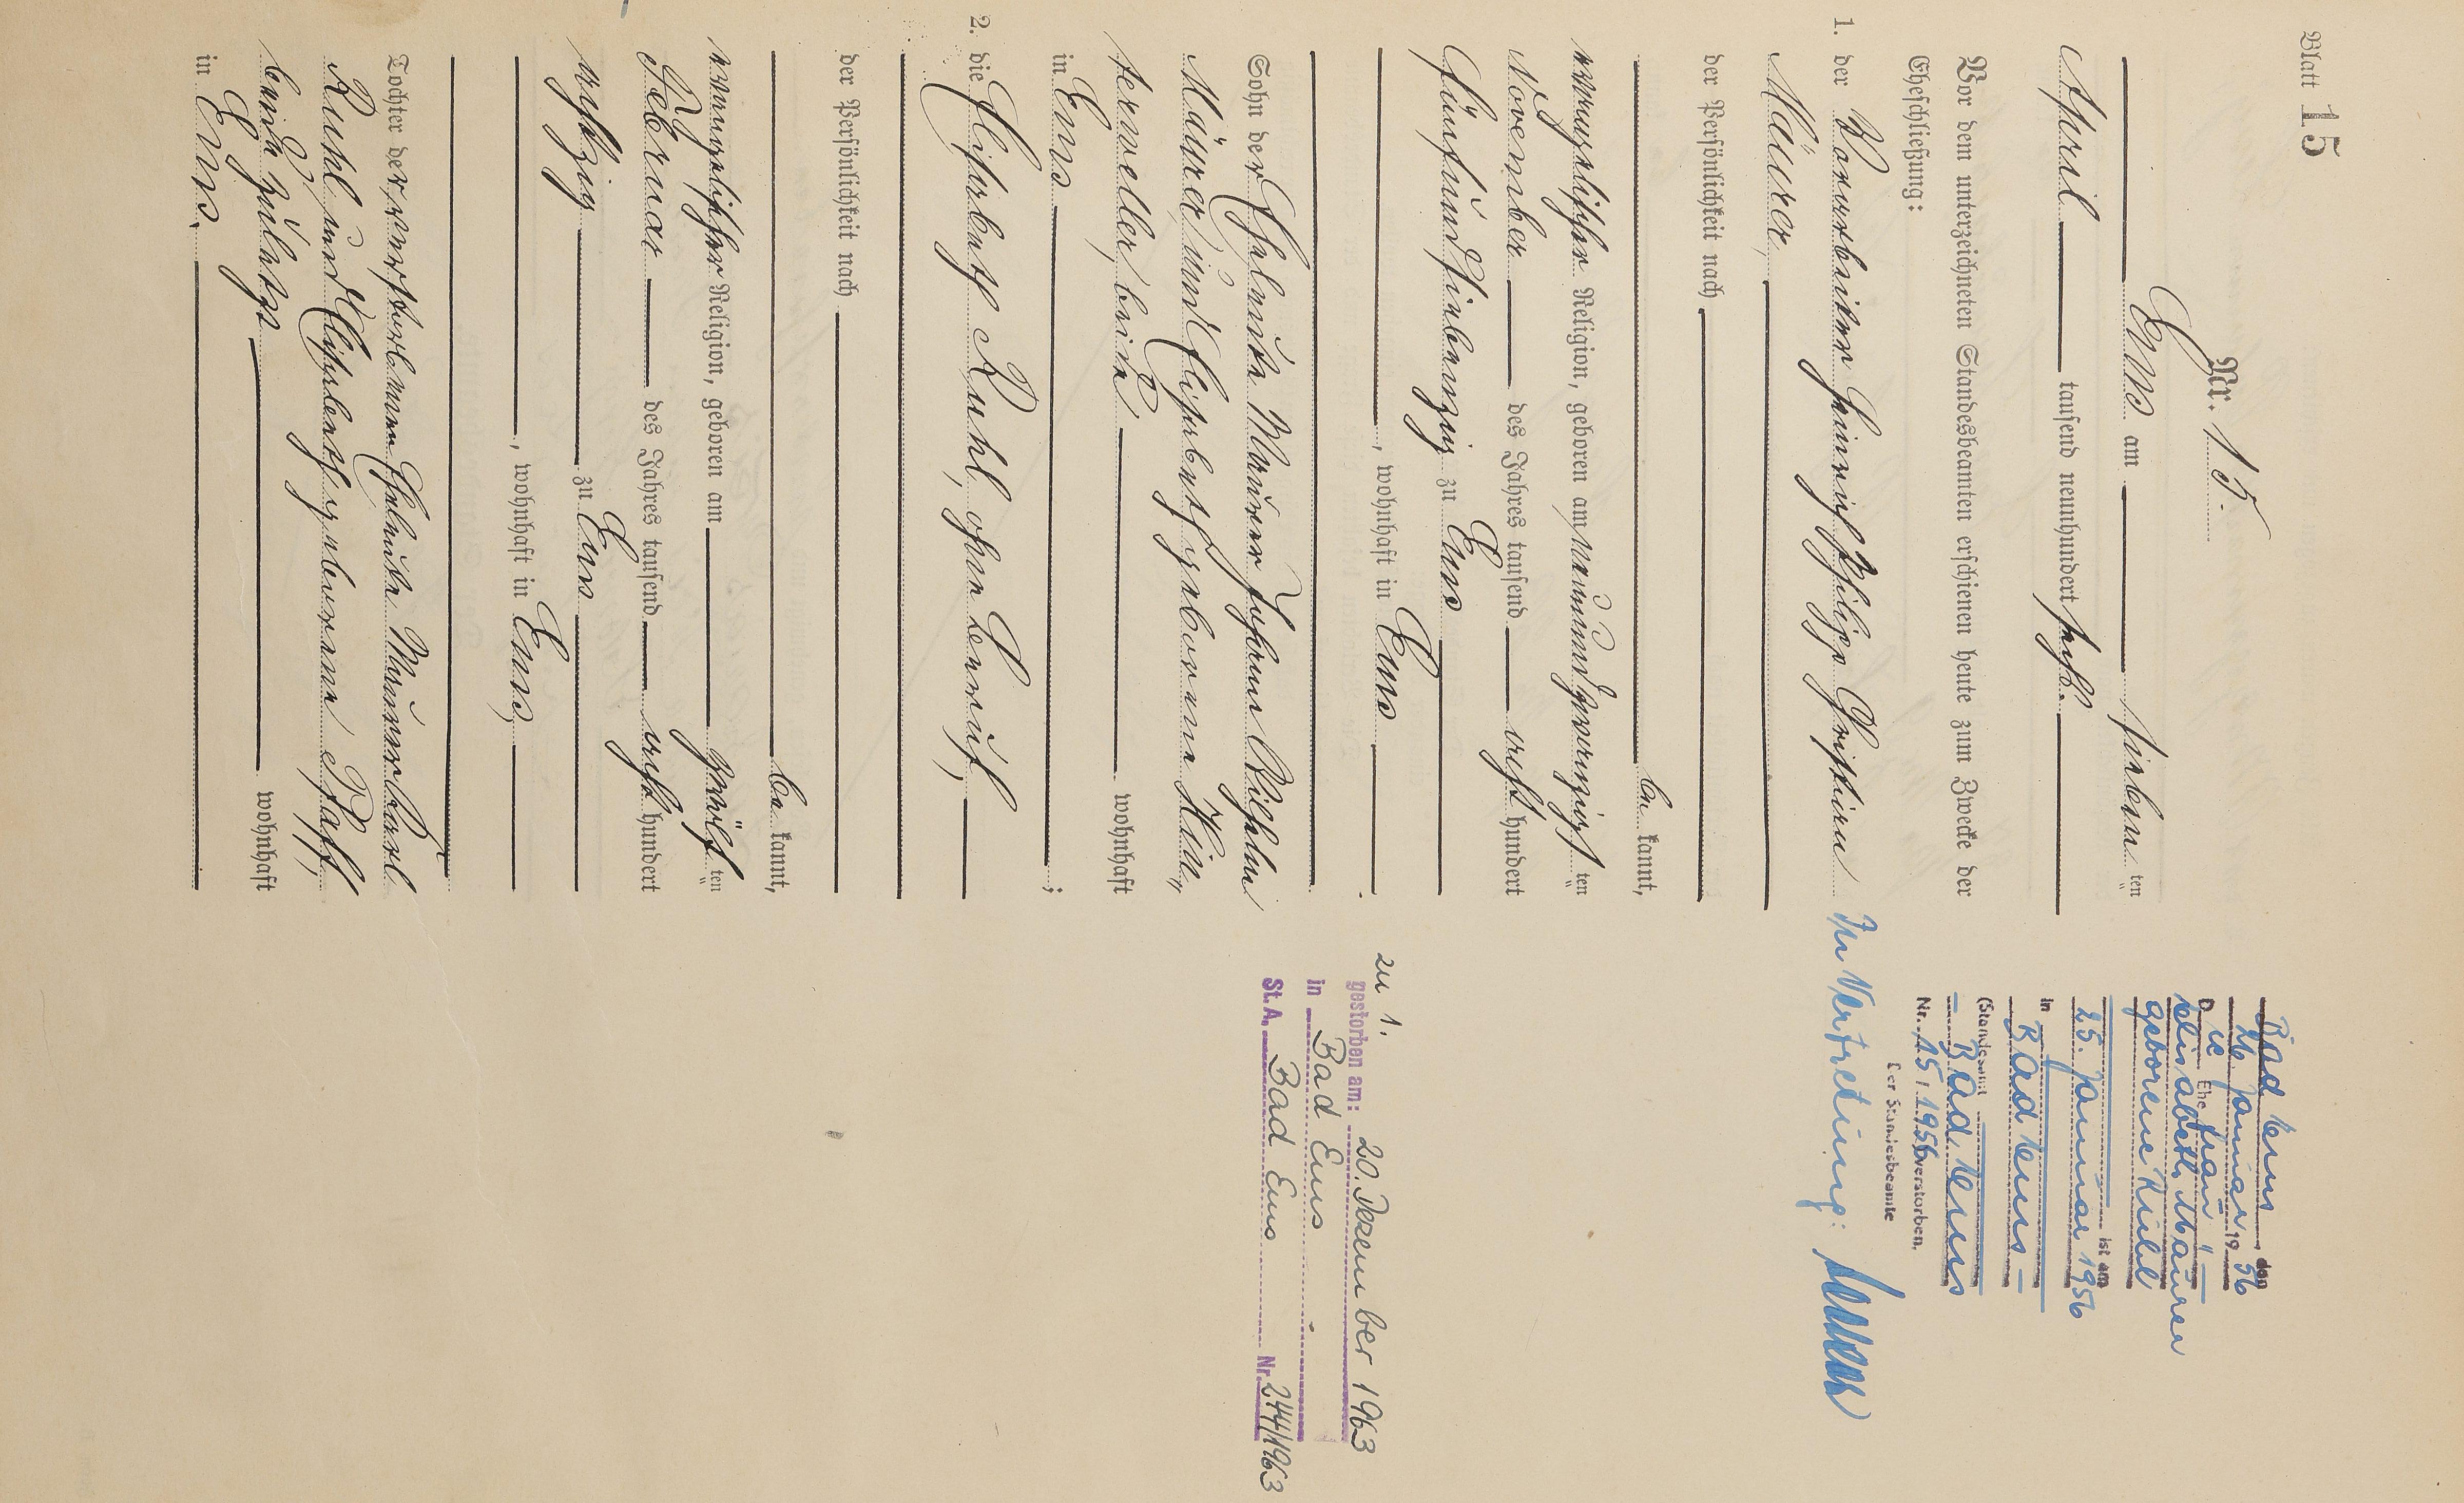 Blatt 15
Nr. 15.
Ems am siebenten
April tausend neunhundert sechs.
Vor dem unterzeichneten Standesbeamten erschienen heute zum Zwecke der
Eheschließung:
1. der Vorarbeiter Heinrich Philipp Christian
Mäurer,
der Persönlichkeit nach
be kannt,
evangelischer Religion, geboren am neunundzwanzigsten
November des Jahres tausend acht hundert
fünfundsiebenzig zu Ems
, wohnhaft in Ems
Sohn der Eheleute Maurer Johann Wilhelm
Mäurer und Elisabeth geborene Hin„
terweller, beide
wohnhaft
in Ems ;
2. die Elisabeth Ruhl, ohne Beruf,
der Persönlichkeit nach
be kannt,
evangelischer Religion, geboren am zwölften
Februar des Jahres tausend acht hundert
achtzig zu Ems
, wohnhaft in Ems,
Tochter der verstorbenen Eheleute Maurer Karl
Ruhl und Elisabeth geborene Pfaff,
beide zuletzt wohnhaft
in Ems.
Bad Ems, den
26. Januar 1956
Die Ehefrau
Elisabeth Mäurer
geborene Ruhl
ist am
25. Januar 1956
in Bad Ems
(Standesamt Bad Ems
Nr. 15/1956 verstorben.
Der Standesbeamte
In Vertretung:
zu 1.
gestorben am: 20. Dezember 1963
in Bad Ems
St.A. Bad Ems Nr. 244/1963